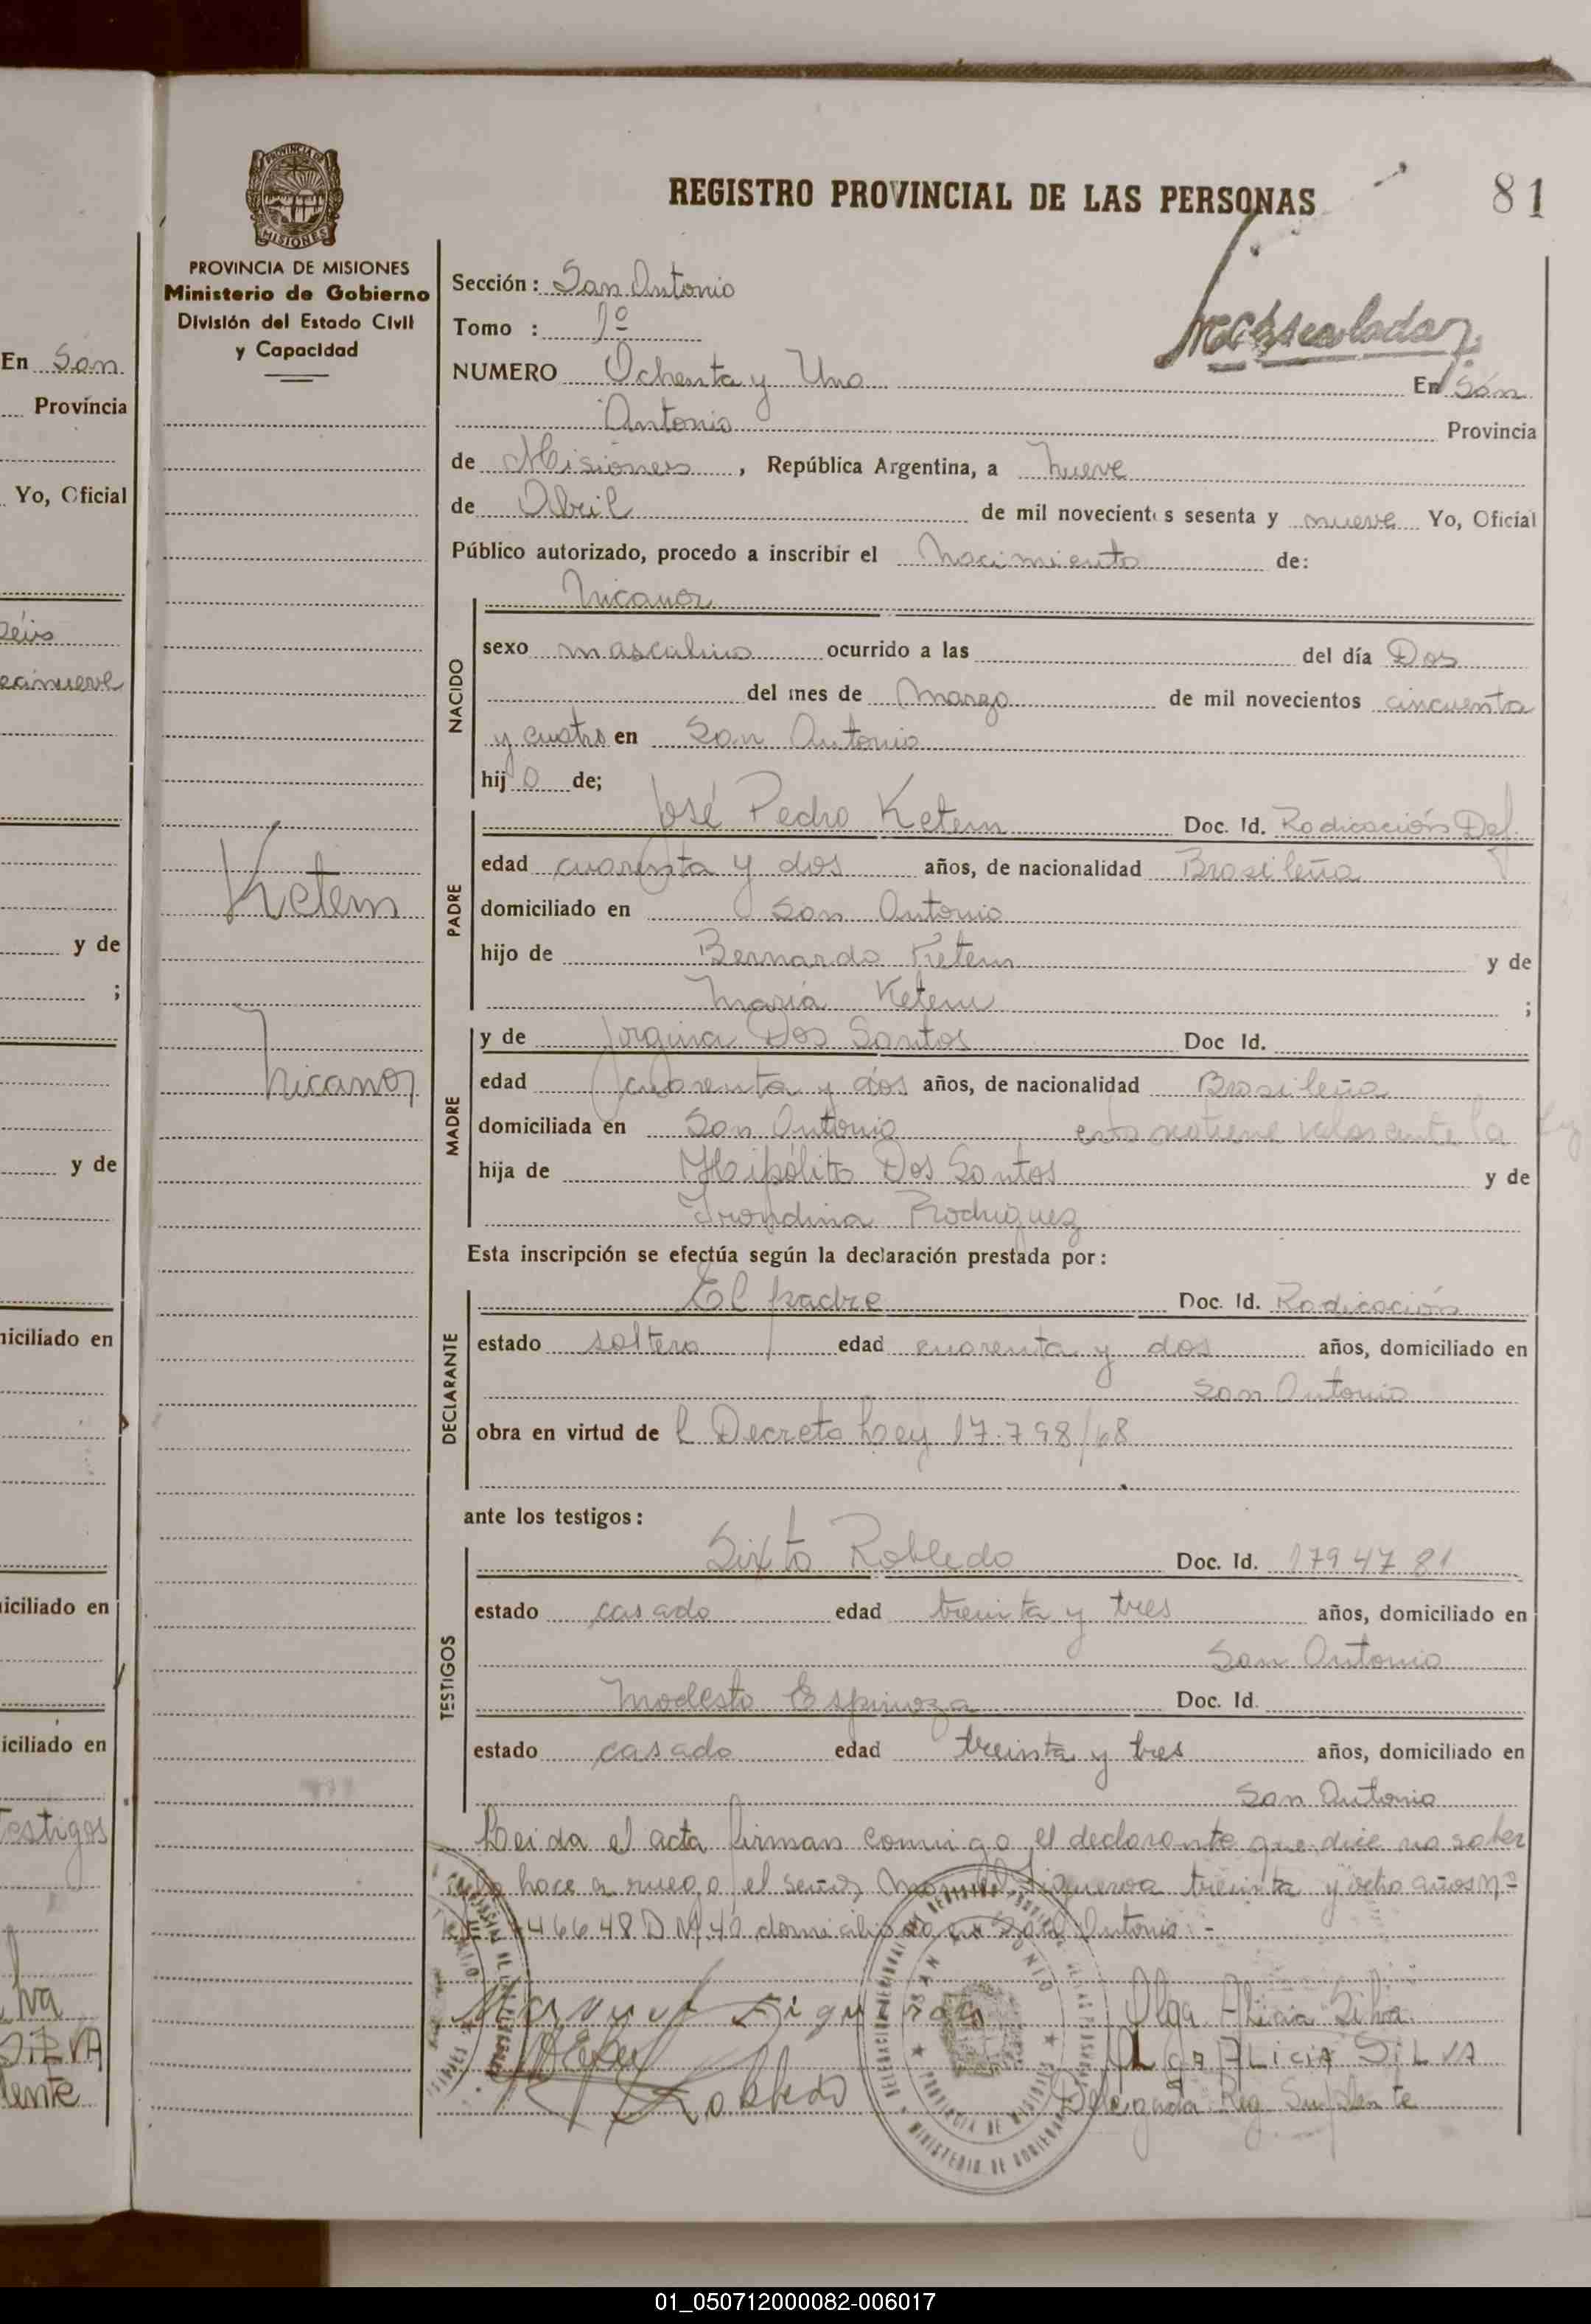 81
REGISTRO PROVINCIAL DE LAS PERSONAS
PROVINCIA DE MISIONES
Ministerio de Gobierno
División del Estado Civil
y Capacidad
Ketem
Nicanor
Sección: San Antonio
Tomo : 1º
NUMERO Ochenta y Uno En San
Antonio Provincia
de Misiones, República Argentina, a nueve
de Abril de mil novecientos sesenta y nueve Yo, Oficial
Público autorizado, procedo a inscribir el nacimiento de:
NACIDO
Nicanor
sexo masculino ocurrido a las del día Dos
del mes de marzo de mil novecientos cincuenta
y cuatro en San Antonio
hijo de;
PADRE
José Pedro Ketem Doc. Id. Radicación Def.
edad cuarenta y dos años, de nacionalidad Brasileña
domiciliado en San Antonio
hijo de Bernardo Ketem y de
María Ketem ;
MADRE
y de Jorgina Dos Santos Doc Id.
edad cuarenta y dos años, de nacionalidad Brasileña
domiciliada en San Antonio esto no tiene valor ante la Ley
hija de Hipólito Dos Santos y de
Rodriguez
Esta inscripción se efectúa según la declaración prestada por:
DECLARANTE
El padre Doc. Id. Radicación
estado soltero edad cuarenta y dos años, domiciliado en
San Antonio
obra en virtud de l Decreto Ley 17.798/68
ante los testigos:
TESTIGOS
Sixto Robledo Doc. Id. 1794781
estado casado edad treinta y tres años, domiciliado en
San Antonio
Modesto Espinoza Doc. Id.
estado casado edad treinta y tres años, domiciliado en
San Antonio
Leida el acta firman comigo el declarante que dice no saber
lo hace a ruego el señor Manuel Figueroa treinta y ocho años nº
46648 D.M.40 domiciliado en San Antonio.-
Manuel Figueroa
Robledo
Olga Alicia Silva
OLGA ALICIA SILVA
Delegada Reg. Suplente
En San
Provincia
Yo, Oficial
y de
;
y de
iciliado en
iciliado en
iciliado en
Testigos
SILVA
lente
01_050712000082-006017